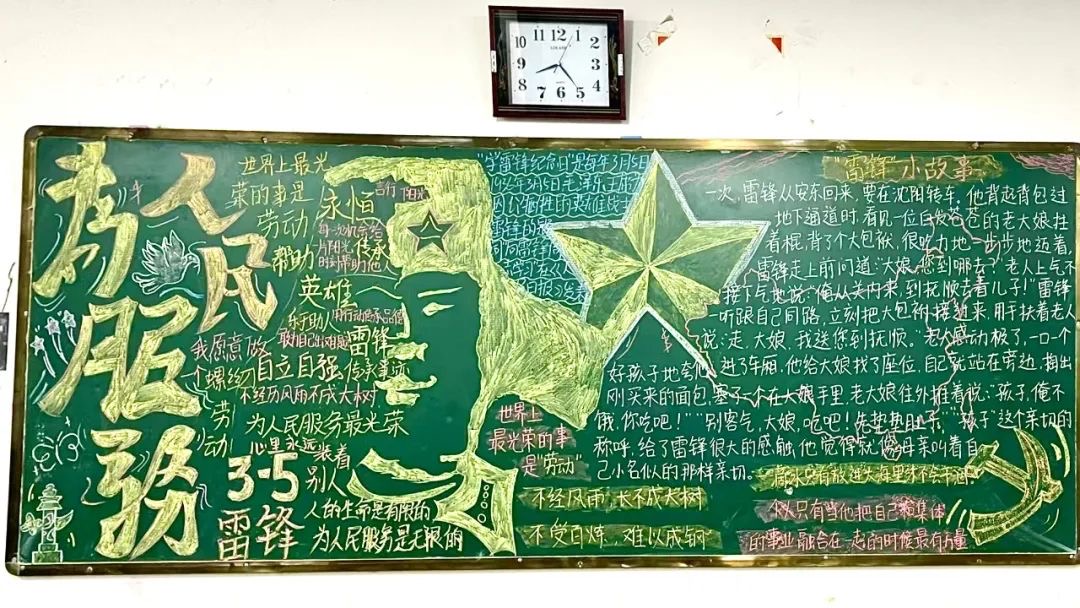 为人民服务
世界上最光
荣的事是
劳动
永恒
传承
帮助
英雄
雷锋
我愿意做
一个螺丝
自立自强
不经历风雨不成大树
劳动
为人民服务最光荣
心里永远装着
别人
3·5
雷锋
人的生命是有限的
为人民服务是无限的
"学雷锋纪念日"是每年3月5日
世界上
最光荣的事
是"劳动"
"雷锋"小故事
一次,雷锋从安东回来,要在沈阳转车,他背起背包过
地下通道时,看见一位白发苍苍的老大娘拄
着棍,背了个大包袱,很吃力地一步步地迈着,
雷锋走上前问道:"大娘,您到哪去?"老人上气不
接下气地说:"俺从关内来,到抚顺去看儿子!"雷锋
一听跟自己同路,立刻把大包袱接过来,用手扶着老人
说:走,大娘,我送您到抚顺。"老人感动极了,一口一个
好孩子地夸他 进了车厢,他给大娘找了座位,自己就站在旁边,掏出
刚买来的面包,塞了一个在大娘手里,老大娘往外推着说:"孩子,俺不
饿,你吃吧!""别客气,大娘,吃吧!先垫垫肚子。""孩子"这个亲切的
称呼,给了雷锋很大的感触,他觉得就像母亲叫着自
己小名似的那样亲切。
不经风雨,长不成大树
不受百炼,难以成钢
只有当他把自己和集体
的事业融合在一起的时候最有力量
11 12 1
10 2
9 3
8 4
7 6 5